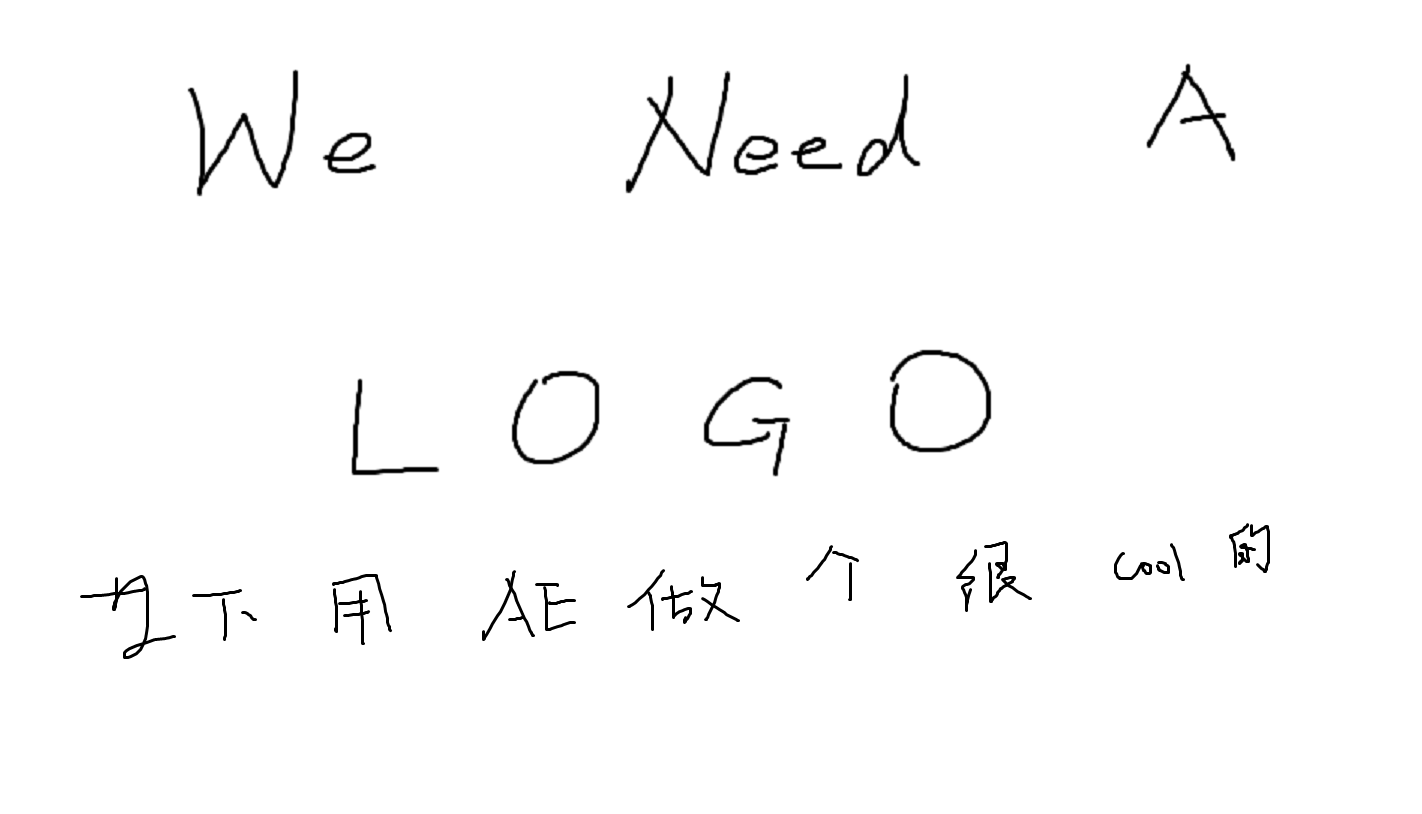 We Need A
LOGO
下用 AE 做个很 cool 的